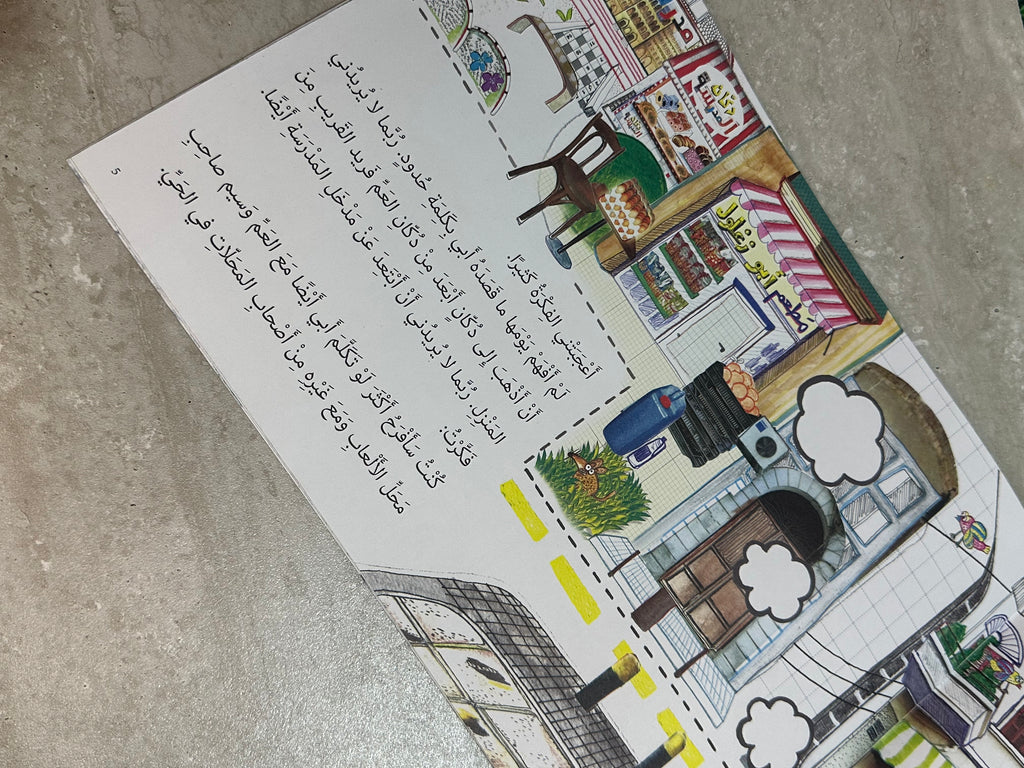 أَعْجَبَتْني الفِكْرَةُ كَثيرًا.
لَمْ أَفْهَمْ يَوْمَها ما قَصَدَهُ أَبي بِكَلِمَةِ حُدودٍ. رُبَّما لا يُريدُني
أَنْ أَذْهَبَ إِلى دُكّانٍ أَبْعَدَ مِنْ دُكّانِ العَمِّ فَريد القَريبِ مِنَ
المَنْزِلِ. رُبَّما لا يُريدُني أَنْ أَبْتَعِدَ عَنْ مَدْخَلِ المَدْرَسَةِ أَيْضًا.
فَكَّرْتُ:
كُنْتُ سَأَفْرَحُ أَكْثَرَ لَوْ تَكَلَّمَ أَبي أَيْضًا مَعَ العَمِّ وَسيم صاحِبِ
مَحَلِّ الأَلْعابِ وَمَعَ غَيْرِهِ مِنْ أَصْحابِ المَحَلّاتِ في الحَيِّ.
5
دكان
مطعم أبو زغلول